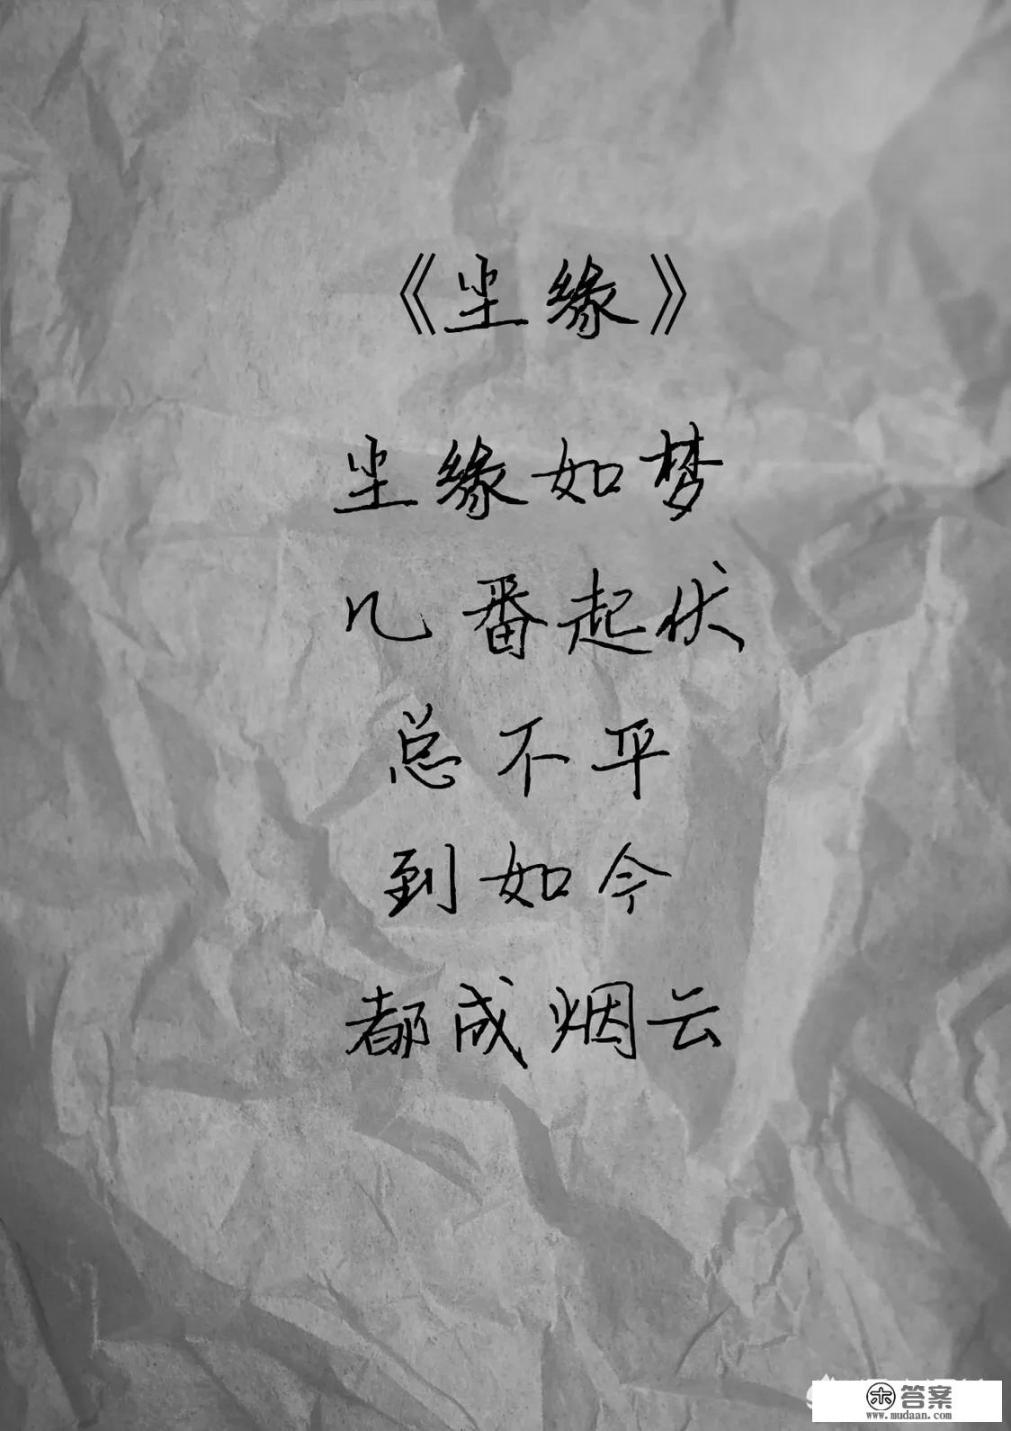 《尘缘》
尘缘如梦
几番起伏
总不平
到如今
都成烟云
答案
www.mudaan.com